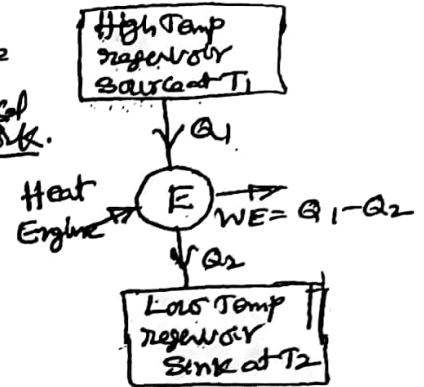 High Temp
reservoir
Source at T1
Q1
Heat
Engine
E
WE = Q1-Q2
Q2
Low Temp
reservoir
Sink at T2